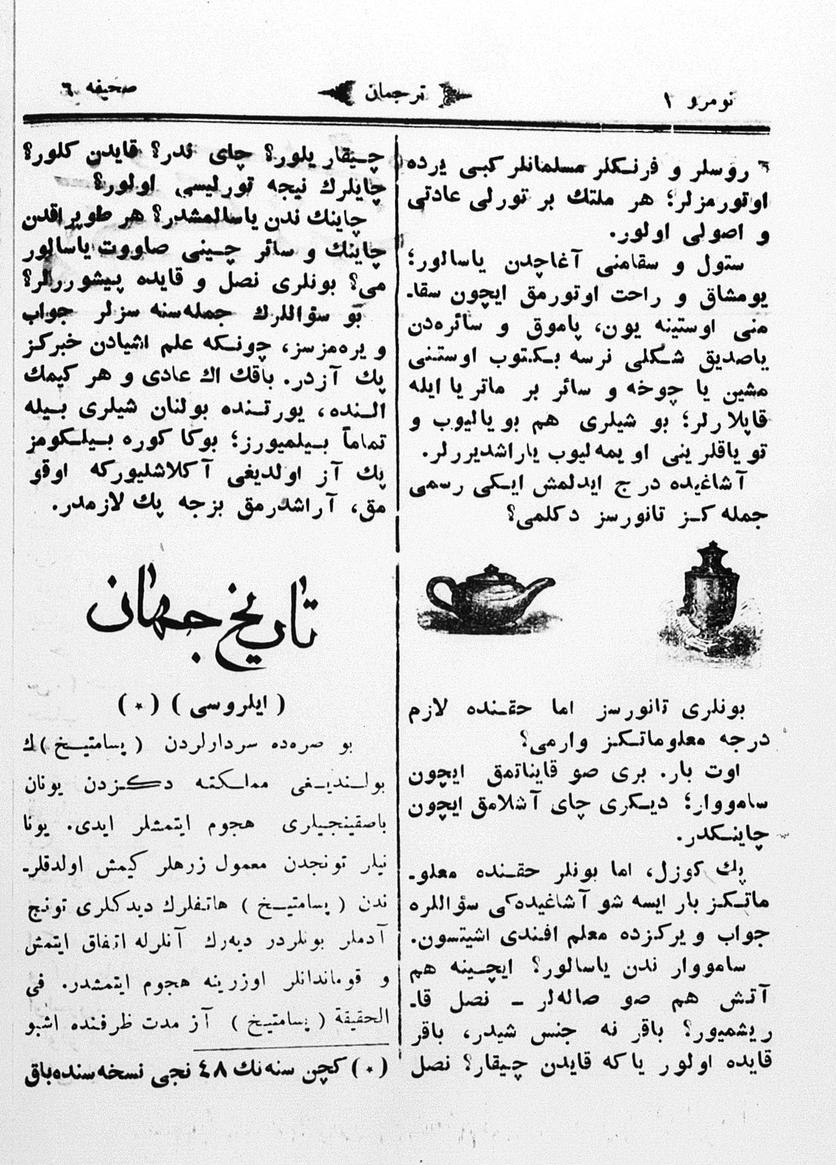 نومرو ١
ترجمان
صحيفه ٦
روسلر و فرنكلر مسلمانلر كبى يرده
اوتورمزلر؛ هر ملتك بر تورلى عادتى
و اصولى اولور.
ستول و سقامنى آغاچدن ياسالور؛
يومشاق و راحت اوتورمق ايچون سقا-
منى اوستينه يون، پاموق و سائره‌دن
ياصديق شكلى نرسه بكتوب اوستنى
مشين يا چوخه و سائر بر ماتريا ايله
قاپلارلر؛ بو شيلرى هم بوياليوب و
توياقلرينى اويمه‌ليوب ياراشديررلر.
آشاغيده درج ايدلمش ايكى رسمى
جمله كز تانورسز دكلمى؟
بونلرى تانورسز اما حقنده لازم
درجه معلوماتكز وارمى؟
اوت بار. برى صو قايناتمق ايچون
سامووار؛ ديكرى چاى آشلامق ايچون
چاينكدر.
پك كوزل، اما بونلر حقنده معلو-
ماتكز بار ايسه شو آشاغيده‌كى سؤاللره
جواب ويركزده معلم افندى اشيتسون.
سامووار ندن ياسالور؟ ايچينه هم
آتش هم صو صاله‌لر – نصل قا-
ريشميور؟ باقر نه جنس شيدر، باقر
قايده اولور ياكه قايدن چيقار؟ نصل
چيقاريلور؟ چاى ندر؟ قايدن كلور؟
چايلرك نيجه تورليسى اولور؟
چاينك ندن ياسالمشدر؟ هر طوپراقدن
چاينك و سائر چينى صاووت ياسالور
مى؟ بونلرى نصل و قايده پيشوررلر؟
بو سؤاللرك جمله‌سنه سزلر جواب
ويره‌مزسز، چونكه علم اشيادن خبركز
پك آزدر. باقك اك عادى و هر كيمك
النده، يورتنده بولنان شيلرى بيله
تماماً بيلميورز؛ بوكا كوره بيلكومز
پك آز اولديغى آكلاشليوركه اوقو
مق، آراشدرمق بزجه پك لازمدر.
تاريخ جهان
(ايلروسى) (*)
بو صره‌ده سردارلردن (پسامتيخ)ك
بولنديغى مملكته دكزدن يونان
باصقينجيلرى هجوم ايتمشلر ايدى. يونا
نيلر تونجدن معمول زرهلر كيمش اولدقلر-
ندن (پسامتيخ) هاتفلرك ديدكلرى تونج
آدملر بونلردر ديه‌رك آنلرله اتفاق ايتمش
و قوماندانلر اوزرينه هجوم ايتمشدر. فى
الحقيقة (پسامتيخ) آز مدت ظرفنده اشبو
(*) كچن سنه‌نك ٤٨ نجى نسخه‌سنده باق